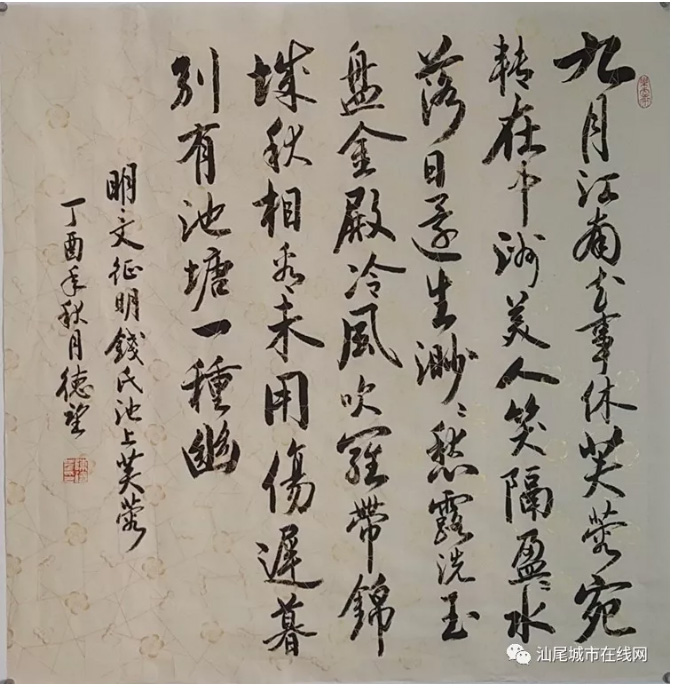 九月江南花事休芙蓉宛
轉在中洲美人笑隔盈〻水
落日還生渺〻愁露洗玉
盤金殿冷風吹羅帶錦
城秋相看未用傷遲暮
别有池塘一種幽
明文征明錢氏池上芙蓉
丁酉年秋月德望
汕尾城市在线网